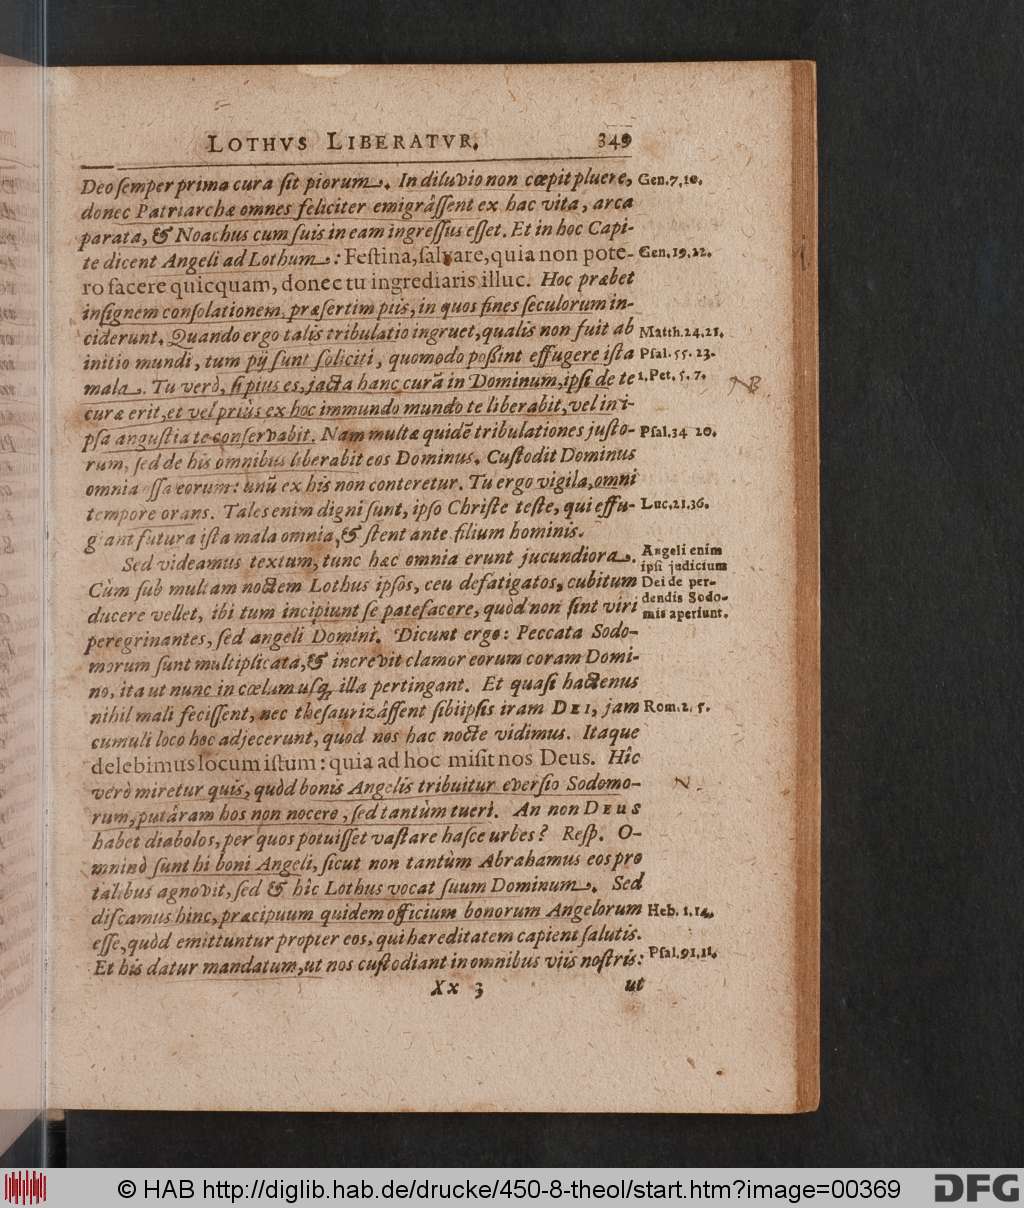 LOTHVS LIBERATVR. 349
Deo semper prima cura sit piorum. In diluvio non cœpit pluere, Gen. 7, 10.
donec Patriarchæ omnes feliciter emigrâssent ex hac vita, arca
parata, & Noachus cum suis in eam ingressus esset. Et in hoc Capi-
te dicent Angeli ad Lothum: Festina, salvare, quia non pote- Gen. 19. 22.
ro facere quicquam, donec tu ingrediaris illuc. Hoc præbet
insignem consolationem, præsertim piis, in quos fines seculorum in-
ciderunt. Quando ergo talis tribulatio ingruet, qualis non fuit ab Matth. 24. 21.
initio mundi, tum pij sunt soliciti, quomodo possint effugere ista Psal. 55. 23.
mala. Tu verò, si pius es, jacta hanc curã in Dominum, ipsi de te 1. Pet. 5. 7. NB
cura erit, et vel priùs ex hoc immundo mundo te liberabit, vel in i-
psa angustia te conservabit. Nam multæ quidẽ tribulationes justo- Psal. 34 20.
rum, sed de his omnibus liberabit eos Dominus. Custodit Dominus
omnia ossa eorum: unũ ex his non conteretur. Tu ergo vigila, omni
tempore orans. Tales enim digni sunt, ipso Christe teste, qui effu- Luc. 21. 36.
giant futura ista mala omnia, & stent ante filium hominis.
Sed videamus textum, tunc hæc omnia erunt jucundiora. Angeli enim
ipsi judicium
Cùm sub multam noctem Lothus ipsos, ceu defatigatos, cubitum Dei de per-
dendis Sodo-
ducere vellet, ibi tum incipiunt se patefacere, quòd non sint viri mis aperiunt.
peregrinantes, sed angeli Domini. Dicunt ergo: Peccata Sodo-
morum sunt multiplicata, & increvit clamor eorum coram Domi-
no, ita ut nunc in cœlum usq; illa pertingant. Et quasi hactenus
nihil mali fecissent, nec thesaurizâssent sibiipsis iram DEI, jam Rom. 2. 5.
cumuli loco hoc adjecerunt, quod nos hac nocte vidimus. Itaque
delebimus locum istum: quia ad hoc misit nos Deus. Hîc
verò miretur quis, quòd bonis Angelis tribuitur eversio Sodomo- N
rum, putâram hos non nocere, sed tantùm tueri. An non DEUS
habet diabolos, per quos potuisset vastare hasce urbes? Resp. O-
mninò sunt hi boni Angeli, sicut non tantùm Abrahamus eos pro
talibus agnovit, sed & hîc Lothus vocat suum Dominum. Sed
discamus hinc, præcipuum quidem officium bonorum Angelorum Heb. 1. 14.
esse, quòd emittuntur propter eos, qui hæreditatem capient salutis.
Et his datur mandatum, ut nos custodiant in omnibus viis nostris: Psal. 91, 11.
Xx 3 ut
© HAB http://diglib.hab.de/drucke/450-8-theol/start.htm?image=00369 DFG